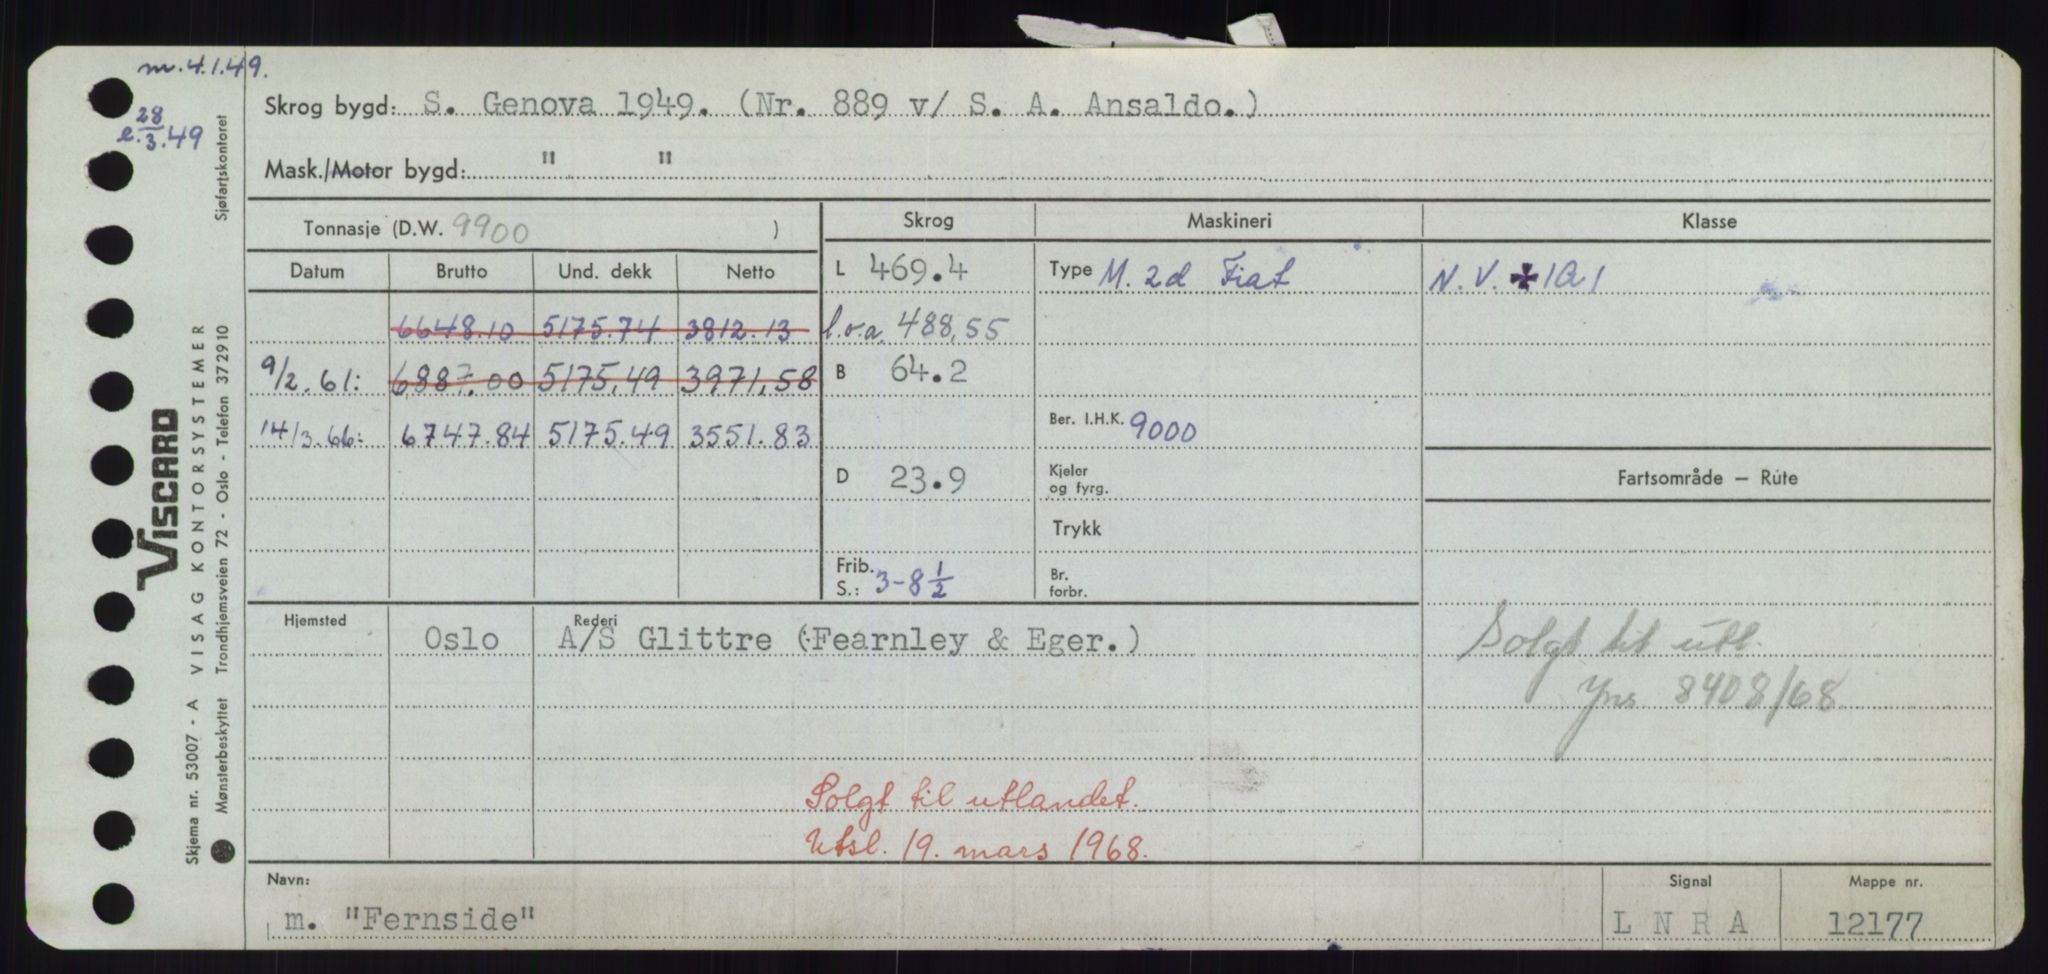 m. 4.1.49.
e. 28/3.49
Skrog bygd: S. Genova 1949. (Nr. 889 v/ S. A. Ansaldo.)
Mask./Motor bygd: " "
Tonnasje (D.W. 9900 )
Skrog
Maskineri
Klasse
Datum Brutto Und. dekk Netto
L 469.4
Type M. 2d Fiat
N.V. ✠ 1A1
6648.10 5175.74 3812.13
l.o.a. 488,55
9/2.61: 6887.00 5175,49 3971,58
B 64.2
14/3.66: 6747.84 5175.49 3551.83
Ber. I.H.K. 9000
D 23.9
Kjeler
og fyrg.
Fartsområde – Rúte
Trykk
Frib.
S.: 3-8 1/2
Br.
forbr.
Hjemsted
Rederi
Oslo A/S Glittre (Fearnley & Eger.)
Solgt til utl.
8408/68
Solgt til utlandet.
Utsl. 19. mars 1968.
Navn:
m. "Fernside"
Signal
L N R A
Mappe nr.
12177
Skjema nr. 53007 - A VISAG KONTORSYSTEMER
VISCARD
Mønsterbeskyttet Trondhjemsveien 72 - Oslo - Telefon 372910 Sjøfartskontoret